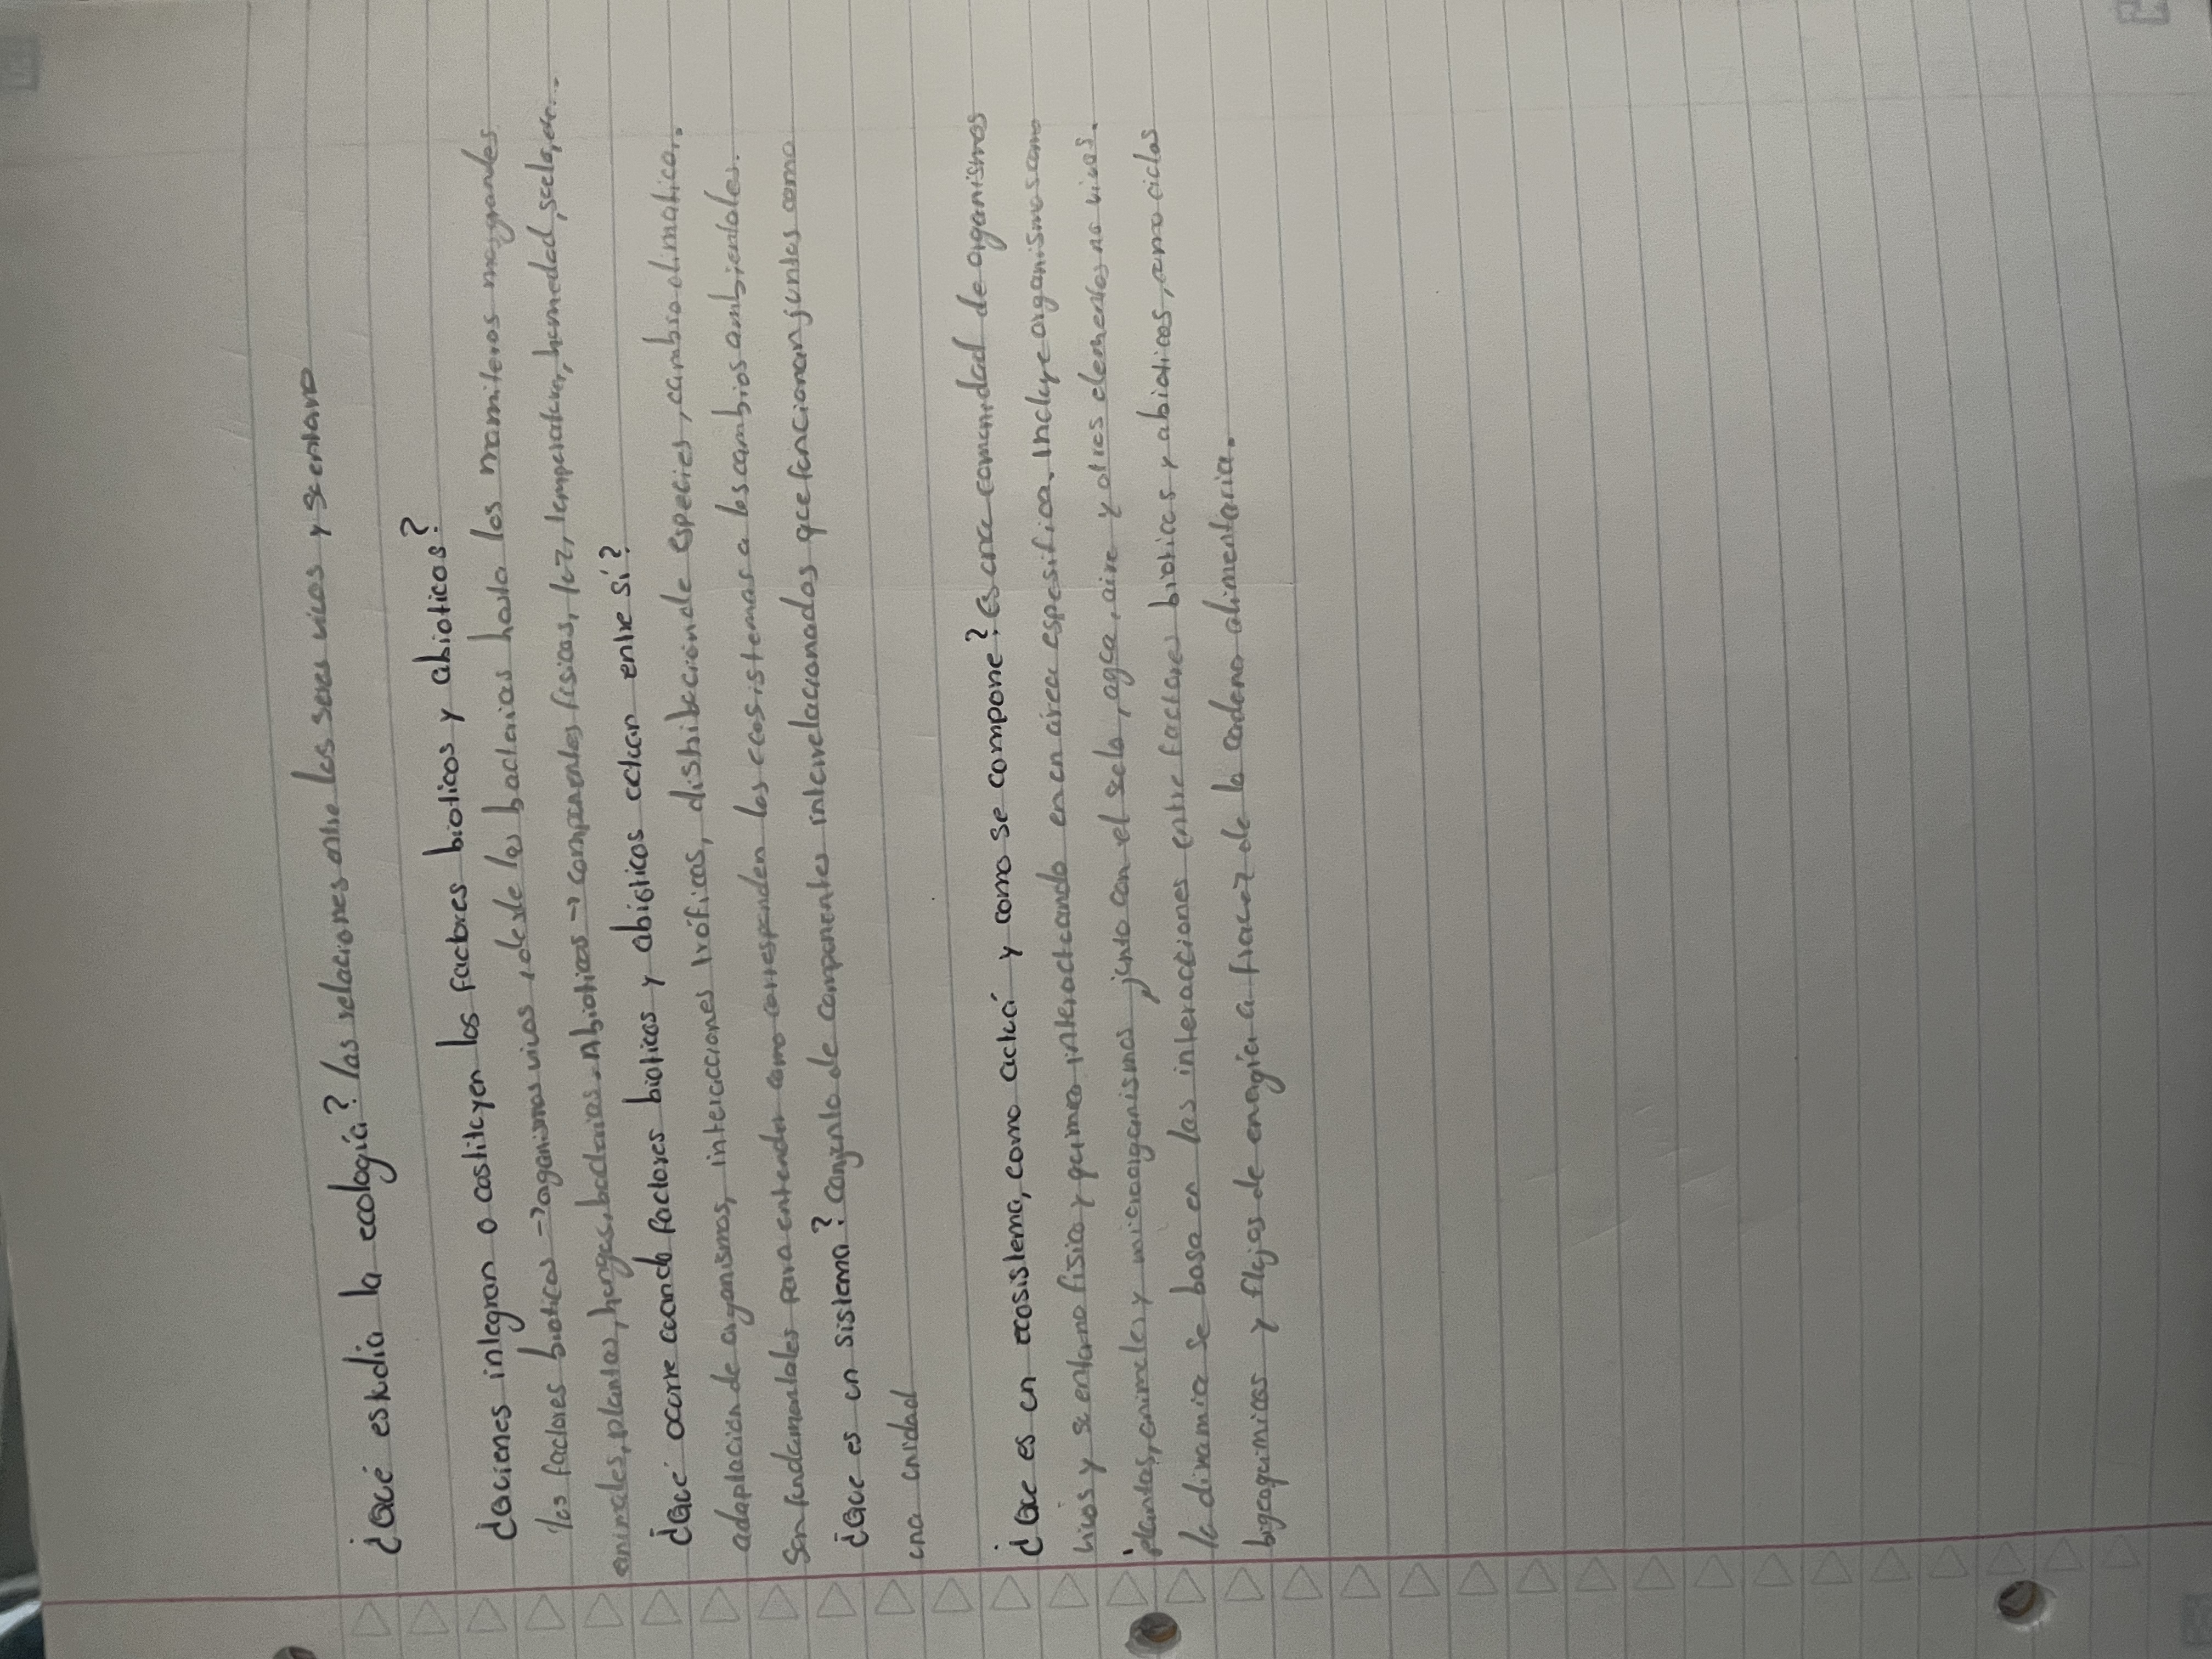 ¿Qué estudia la ecología? las relaciones entre los seres vivos y su entorno
¿Quienes integran o costituyen los factores bioticos y abioticos?
los factores bioticos → organismos vivos, desde las bacterias hasta los mamiferos mas grandes
animales, plantas, hongos, bacterias. Abioticos → componentes fisicos, luz, temperatura, humedad, suelo, etc...
¿Qué ocurre cuando factores bioticos y abióticos actuan entre sí?
adaptacion de organismos, interacciones tróficas, distribución de especies, cambio climatico.
Son fundamentales para entender como corresponden los ecosistemas a los cambios ambientales.
¿Que es un sistema? conjunto de componentes interrelacionados que funcionan juntos como
una unidad
¿Que es un ecosistema, como actuá y como se compone? es una comunidad de organismos
vivos y su entorno fisico y quimico interactuando en un area espesifica. Incluye organismos como
plantas, animales y microorganismos junto con el suelo, agua, aire y otros elementos no vivos.
la dinamica se basa en las interacciones entre factores bioticos y abioticos, como ciclos
bigeoquimicos y flujos de energia a travez de la cadena alimentaria.